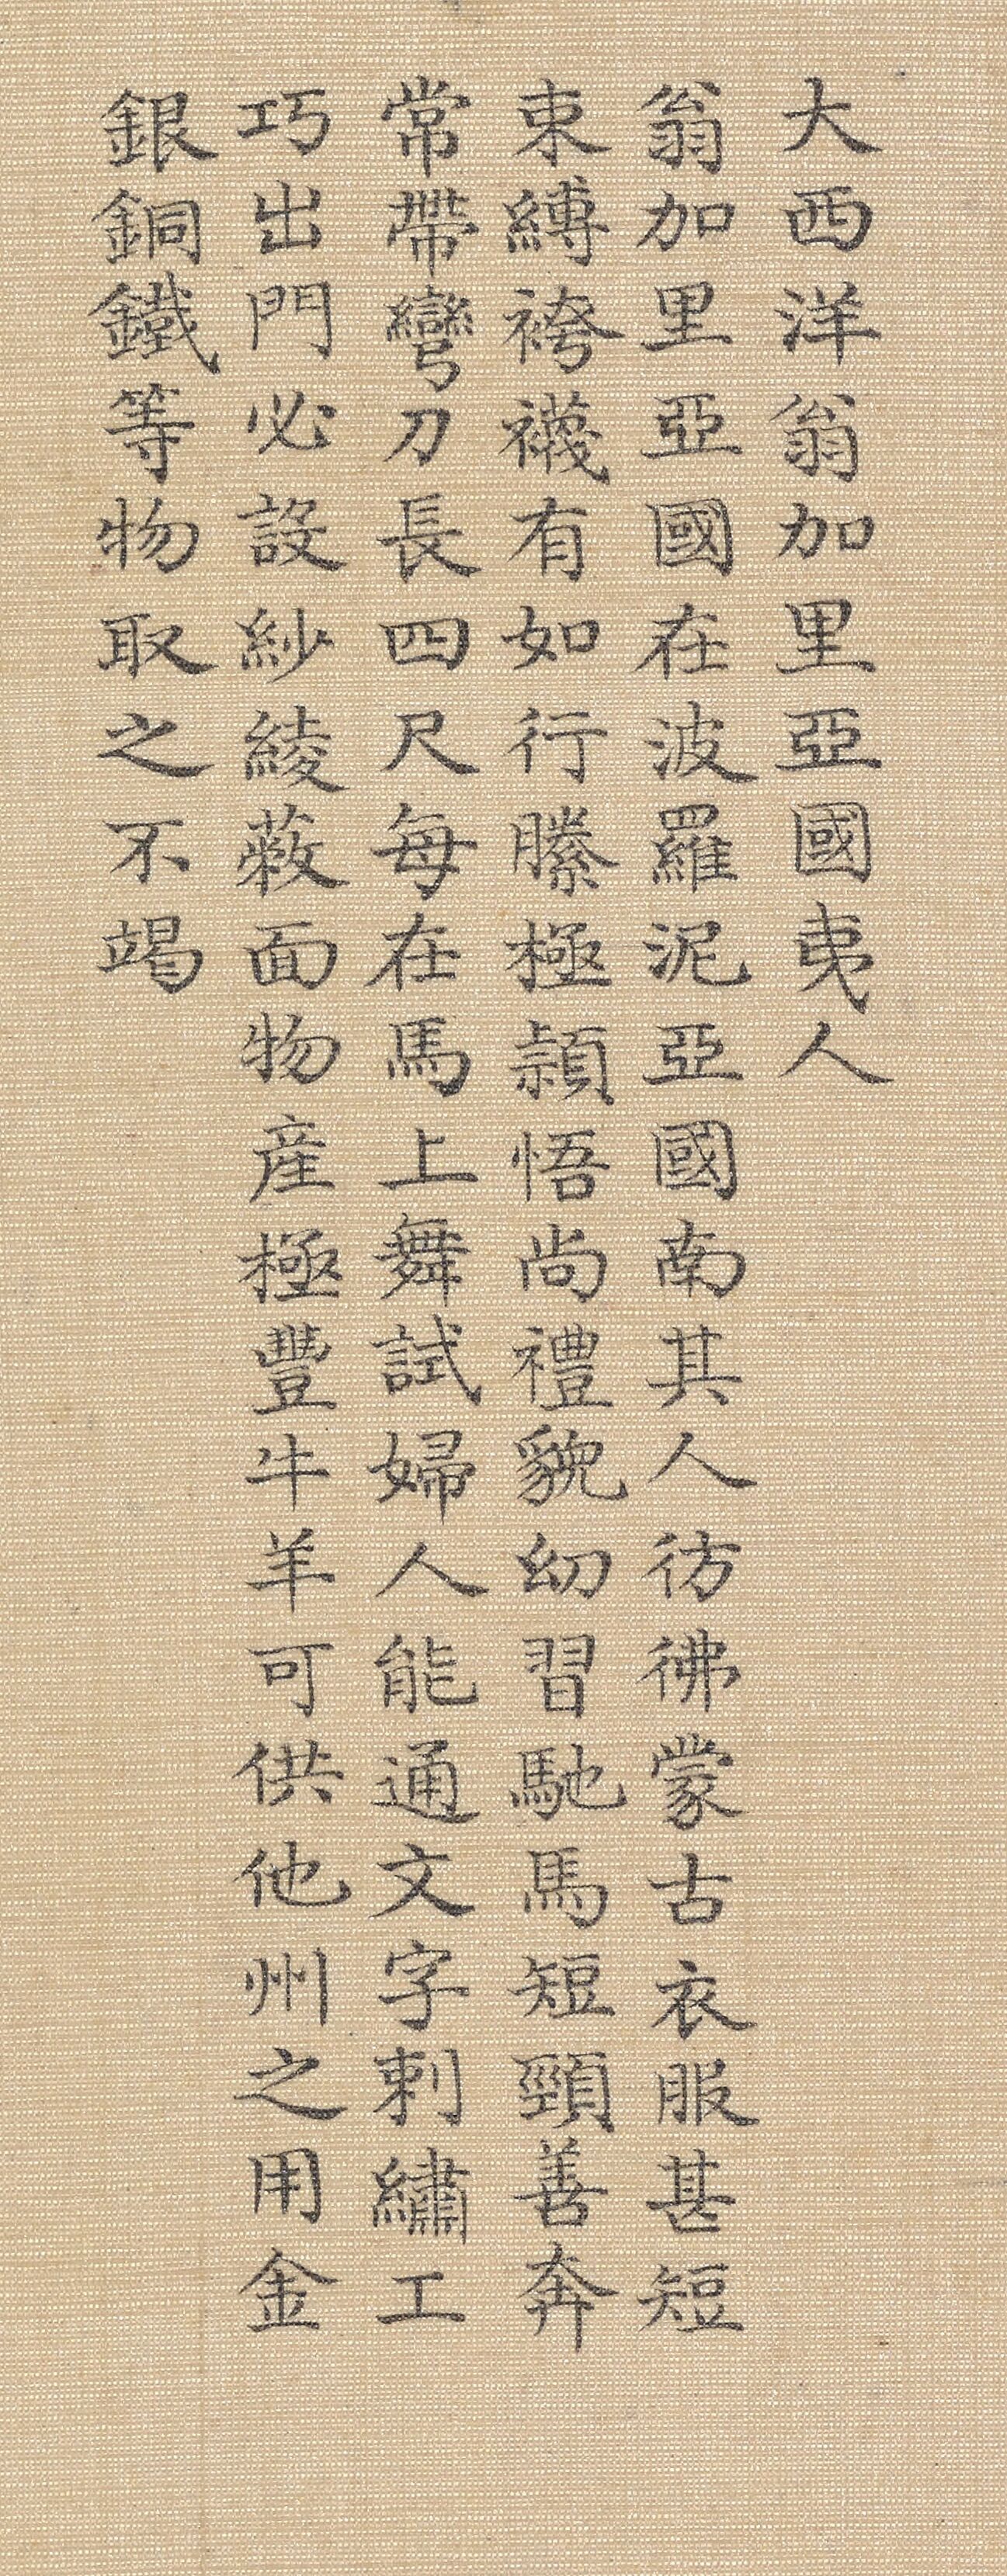 大西洋翁加里亞國夷人
翁加里亞國在波羅泥亞國南其人彷彿蒙古衣服甚短
束縛袴襪有如行縢極頴悟尚禮貌幼習馳馬短頸善奔
常帶彎刀長四尺每在馬上舞試婦人能通文字刺繡工
巧出門必設紗綾蔽面物產極豐牛羊可供他州之用金
銀銅鐵等物取之不竭